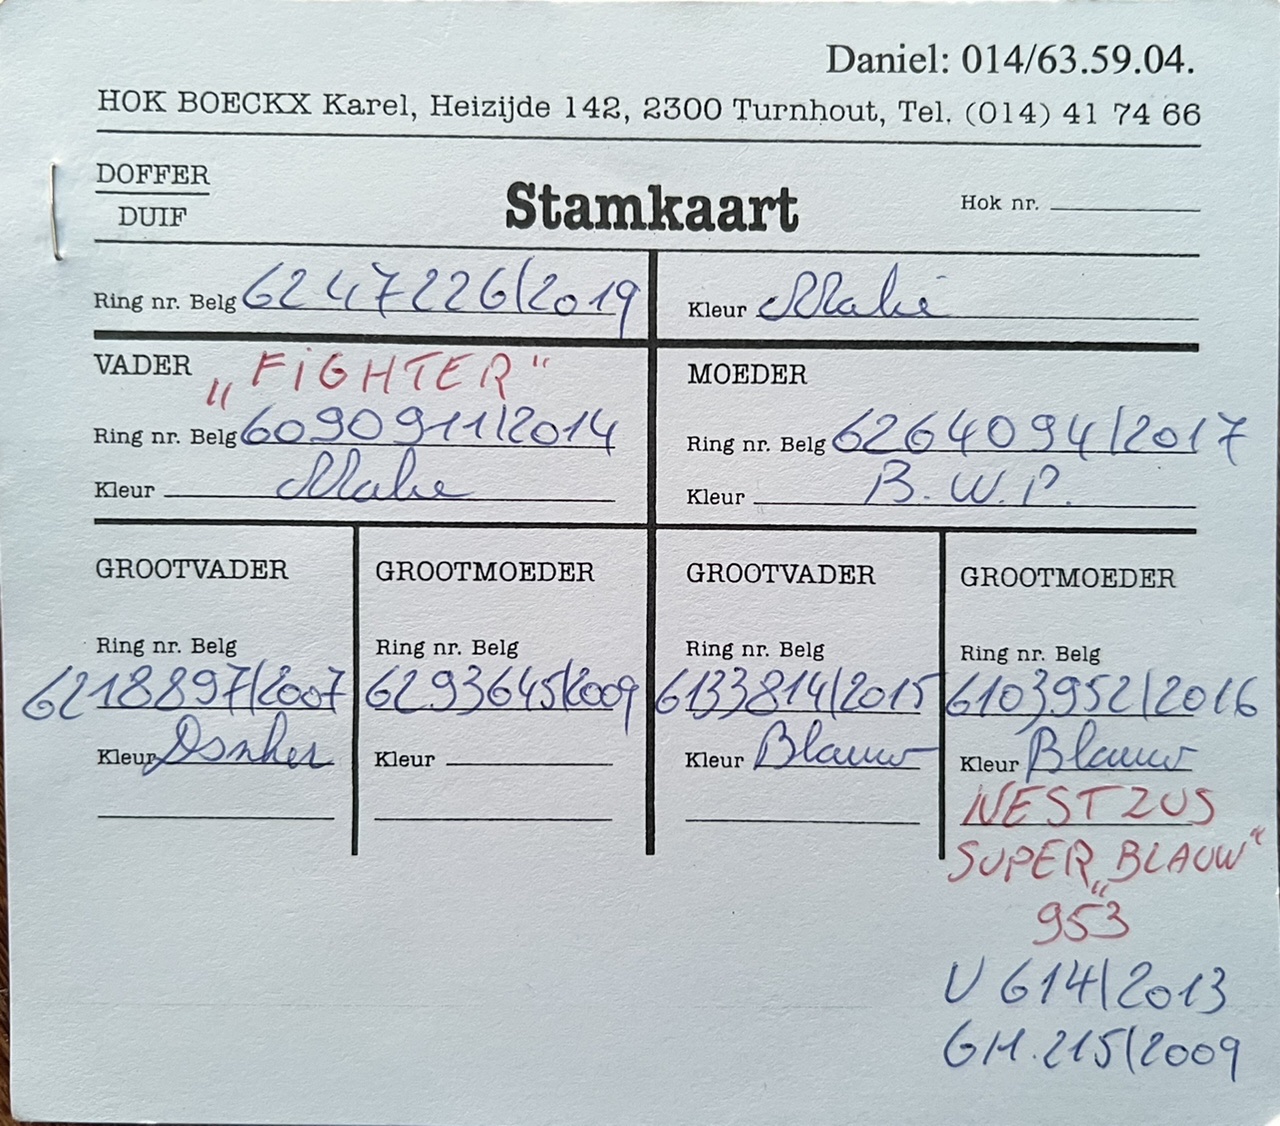 Daniel: 014/63.59.04.
HOK BOECKX Karel, Heizijde 142, 2300 Turnhout, Tel. (014) 41 74 66
DOFFER
DUIF
Stamkaart
Hok nr.
Ring nr. Belg 6247226/2019
Kleur
VADER „FiGHTER"
Ring nr. Belg 6090911/2014
Kleur
MOEDER
Ring nr. Belg 6264094/2017
Kleur B.W.P.
GROOTVADER
Ring nr. Belg
6218897/2007
Kleur Donker
GROOTMOEDER
Ring nr. Belg
6293645/2009
Kleur
GROOTVADER
Ring nr. Belg
6133814/2015
Kleur Blauw
GROOTMOEDER
Ring nr. Belg
6103952/2016
Kleur Blauw
NESTZUS
SUPER „BLAUW"
953
V 614/2013
GM.215/2009